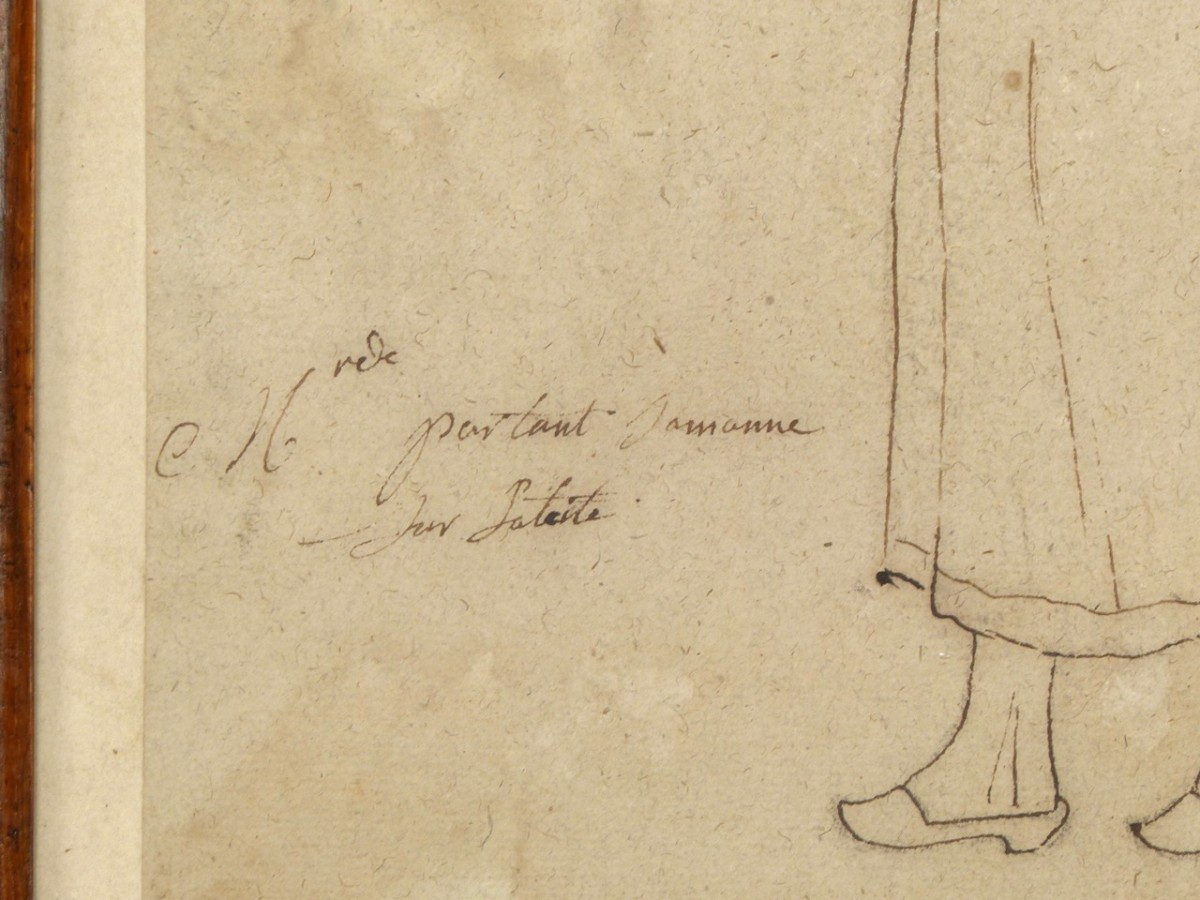 C. M.rde portant Samanne
Sur Sateste